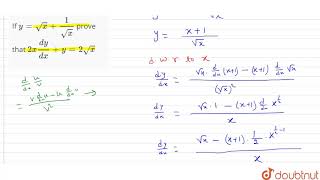 If y = √x + 1/√x prove
that 2x dy/dx + y = 2√x
d/dx u/v
= (v d/dx u - u d/dx v)/v² →
y = (x+1)/√x
d w r to x
dy/dx = (√x · d/dx (x+1) - (x+1) d/dx √x)/(√x)²
dy/dx = (√x · 1 - (x+1) d/dx x^(1/2))/x
dy/dx = (√x - (x+1) · 1/2 · x^(1/2 - 1))/x
doubtnut